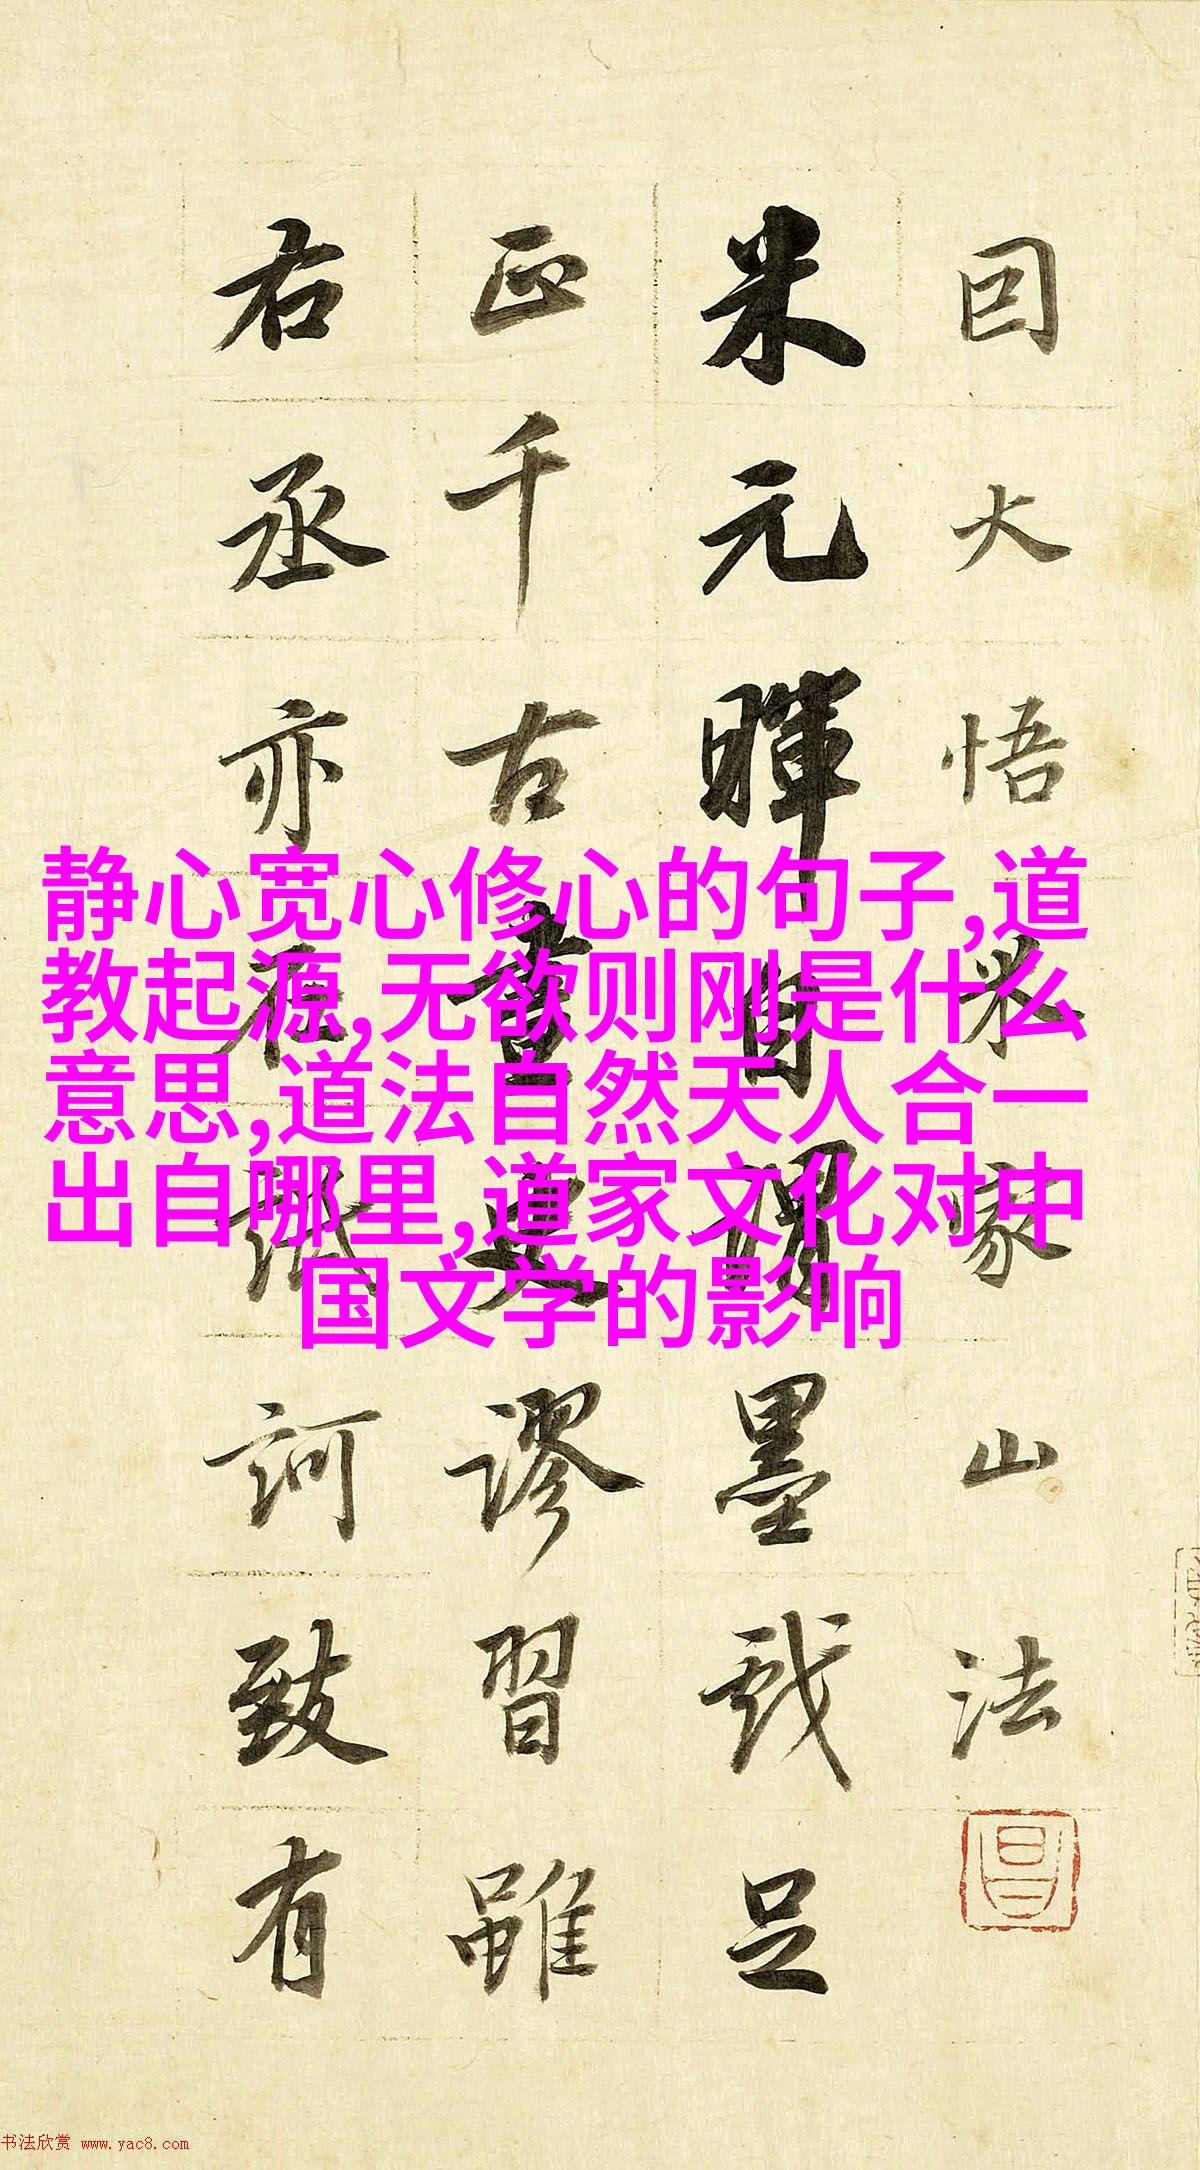 囙大悟米家山法
米元暉自謂墨戲足
正千古畫史謬習雖
右丞亦在詆訶致有
静心宽心修心的句子,道
教起源,无欲则刚是什么
意思,道法自然天人合一
出自哪里,道家文化对中
国文学的影响
书法欣赏 www.yac8.com